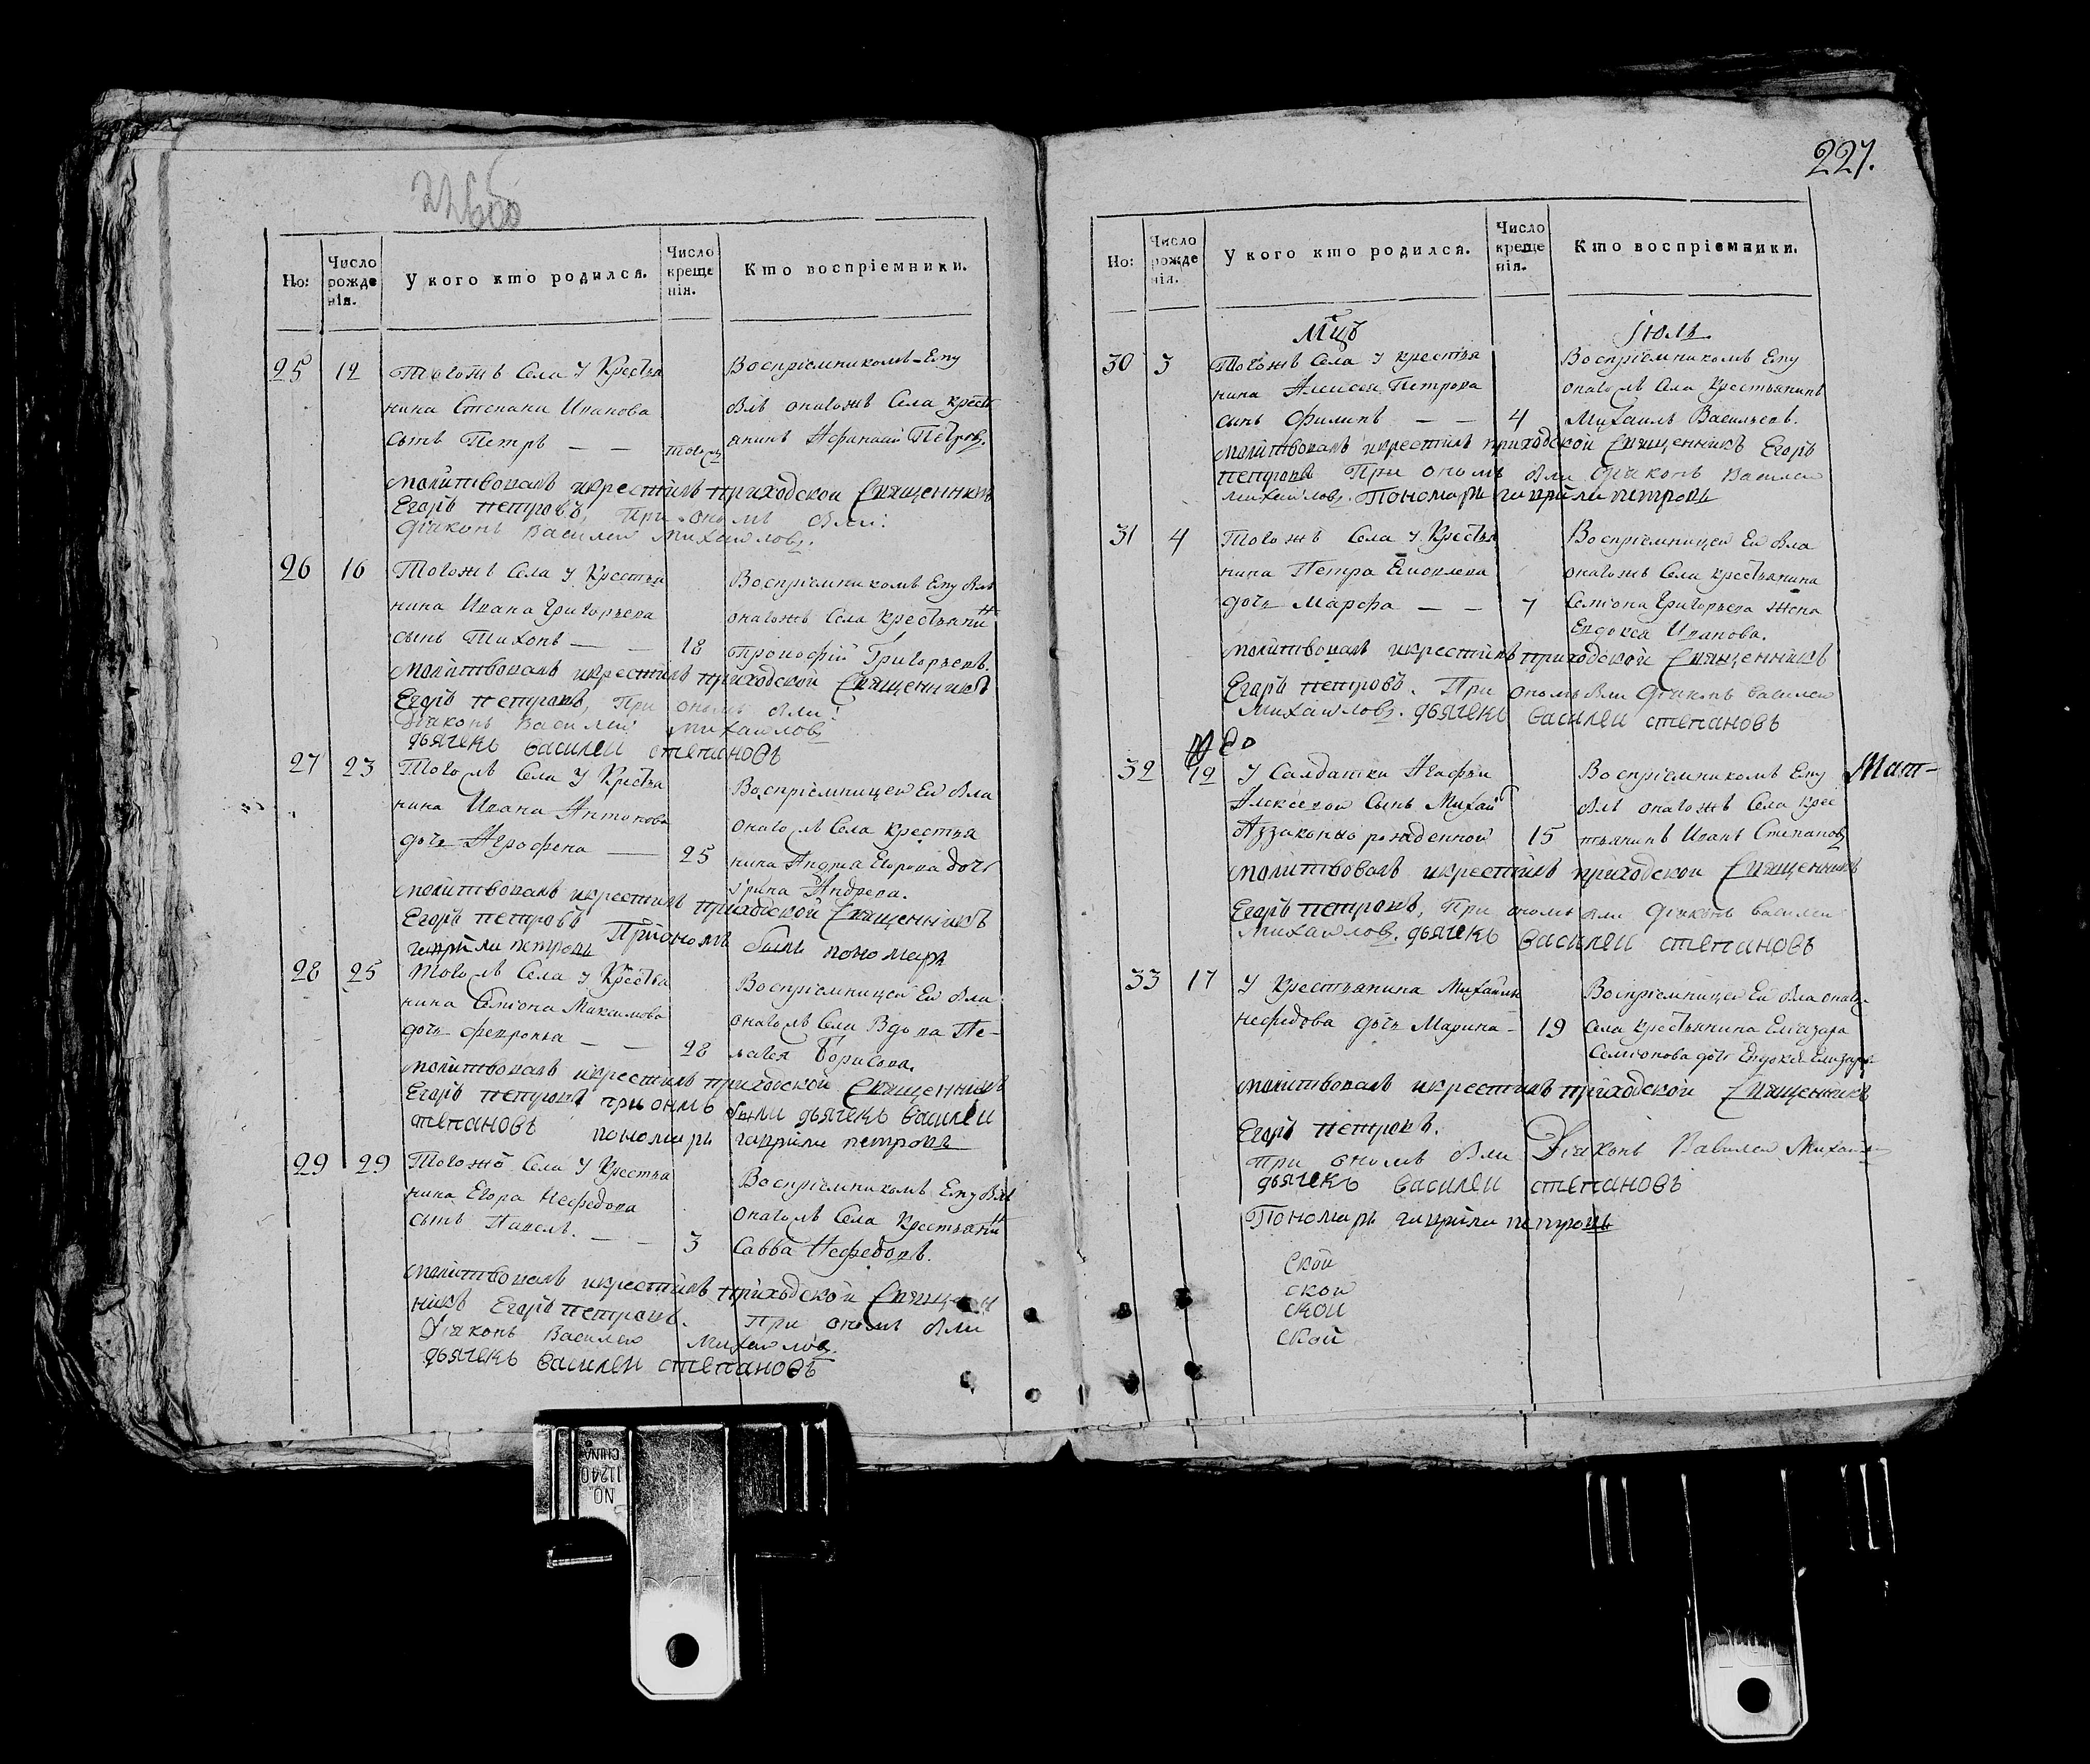 226об
Но:
Число рожде нія.
У кого кто родился.
Число креще нія.
Кто воспріемники.
25 12 Тогожъ Села У Крестья
нина Степана Иванова
сынъ Петръ — — тогожъ
Воспріемникомъ Ему
былъ онагожъ Села крест
янинъ Афанасій Петровъ.
молитвовалъ икрестилъ приходской Священникъ
Егоръ петровъ, При ономъ были:
діаконъ Василей Михайловъ.
26 16 Тогожъ Села У Крестья
нина Ивана Григорьева
сынъ Тихонъ — — 18
Воспріемникомъ Ему былъ
онагожъ Села крестьянинъ
Прокофій Григорьевъ.
молитвовалъ икрестилъ приходской Священникъ
Егоръ петровъ, При ономъ были:
діаконъ Василей Михайловъ
дьячекъ василеи степановъ
27 23 Тогожъ Села У Крестья
нина Ивана Антонова
дочь Агрофена — 25
Воспріемницей Ей была
онагожъ Села крестья
нина Андрея Егорова дочь
Ірина Андрева.
молитвовалъ икрестилъ приходской Священникъ
Егоръ петровъ Приономъ были пономарь
гаврiила петровъ
28 25 Тогожъ Села У Крестья
нина Семіона Максимова
дочь февронья — — 28
Воспріемницей Ей была
онагожъ Села Вдова Пе-
лагея Борисова.
молитвовалъ икрестилъ приходской Священникъ
Егоръ петровъ при ономъ были дьячекъ василеи
степановъ пономарь гаврiила петровъ
29 29 Тогожъ Села У Крестья
нина Егора Нефедова
сынъ Павелъ. — — 3
Воспріемникомъ Ему былъ
онагожъ Села Крестьянинъ
Савва Нефедовъ.
молитвовалъ икрестилъ приходской Священ
никъ Егоръ петровъ. При ономъ были
Діаконъ Василей Михайловъ.
дьячекъ василеи степановъ
227.
Но:
Число рожде нія.
У кого кто родился.
Число креще нія.
Кто воспріемники.
Мцъ Іюль.
30 3 Тогожъ Села У крестья
нина Алексея Петрова
сынъ Филипъ — — 4
Воспріемникомъ Ему
онагожъ Села Крестьянинъ
Михаилъ Васильевъ.
молитвовалъ икрестилъ приходской Священникъ Егоръ
петровъ При ономъ были діаконъ Василей
Михайловъ. Пономарь гаврiила петровъ
31 4 Тогожъ Села У Крестья
нина Петра Яковлева
дочь Марфа — — 7
Воспріемницей Ей была
онагожъ Села крестьянина
Семіона Григорьева жена
Евдокея Иванова.
молитвовалъ икрестилъ приходской Священникъ
Егоръ петровъ. При ономъ были діаконъ Василей
Михайловъ. дьячекъ василеи степановъ
32 12 У Салдатки Агафьи
Алексевой Сынъ Михайл
беззаконно рожденной 15
Воспріемникомъ Ему
былъ онагожъ Села крес
тьянинъ Иванъ Степановъ
Мат-
молитвовалъ икрестилъ приходской Священникъ
Егоръ петровъ, При ономъ были діаконъ Василей
Михайловъ. дьячекъ василеи степановъ
33 17 У Крестьянина Михайлы
нефедова дочь Марина — 19
Воспріемницей Ей была онагожъ
Села крестьянина Елизара
Семіонова дочь Евдокея Елизарва
молитвовалъ икрестилъ приходской Священникъ
Егоръ петровъ.
при ономъ были Діаконъ Василей Михайловъ
дьячекъ василеи степановъ
Пономарь гаврiила петровъ
ской
ской
ской
ской
NO
11240
CHINA